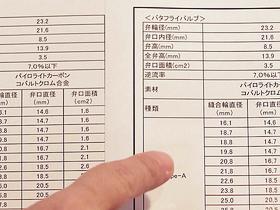 23.2
21.6
8.5
13.9
3.5
7.0%以下
パイロライトカーボン
コバルトクロム合金
輪直径 弁口直径 弁口面積
(mm) (mm) (cm2)
16.1 14.6 1.6
18.7 14.7 1.6
18.7 14.7 1.6
19.9 16.7 2.1
23.0 16.7 2.1
20.8 16.7 2.1
21.9 18.5 2.6
25.0 18.5
<バタフライバルブ>
弁輪径(mm) 23.2
弁口内径(mm) 21.6
弁高(mm) 8.5
全弁高(mm) 13.9
弁口面積(cm2) 3.5
逆流率 7.0%以下
素材 パイロライトカーボン
コバルトクロム
種類 縫合輪直径 弁口直径
(mm) (mm)
16.1 14.6
18.7 14.7
18.7 14.7
19.9 16.7
23.0 16.7
20.8 16.7
21.9 18.5
25.0 18.5
-A 22.8 18.5
23.9 20.4
25.8 20.4